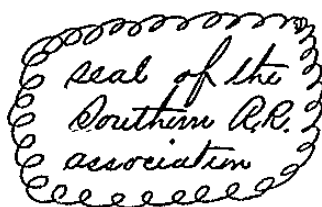 seal of the
Southern A.R.
association